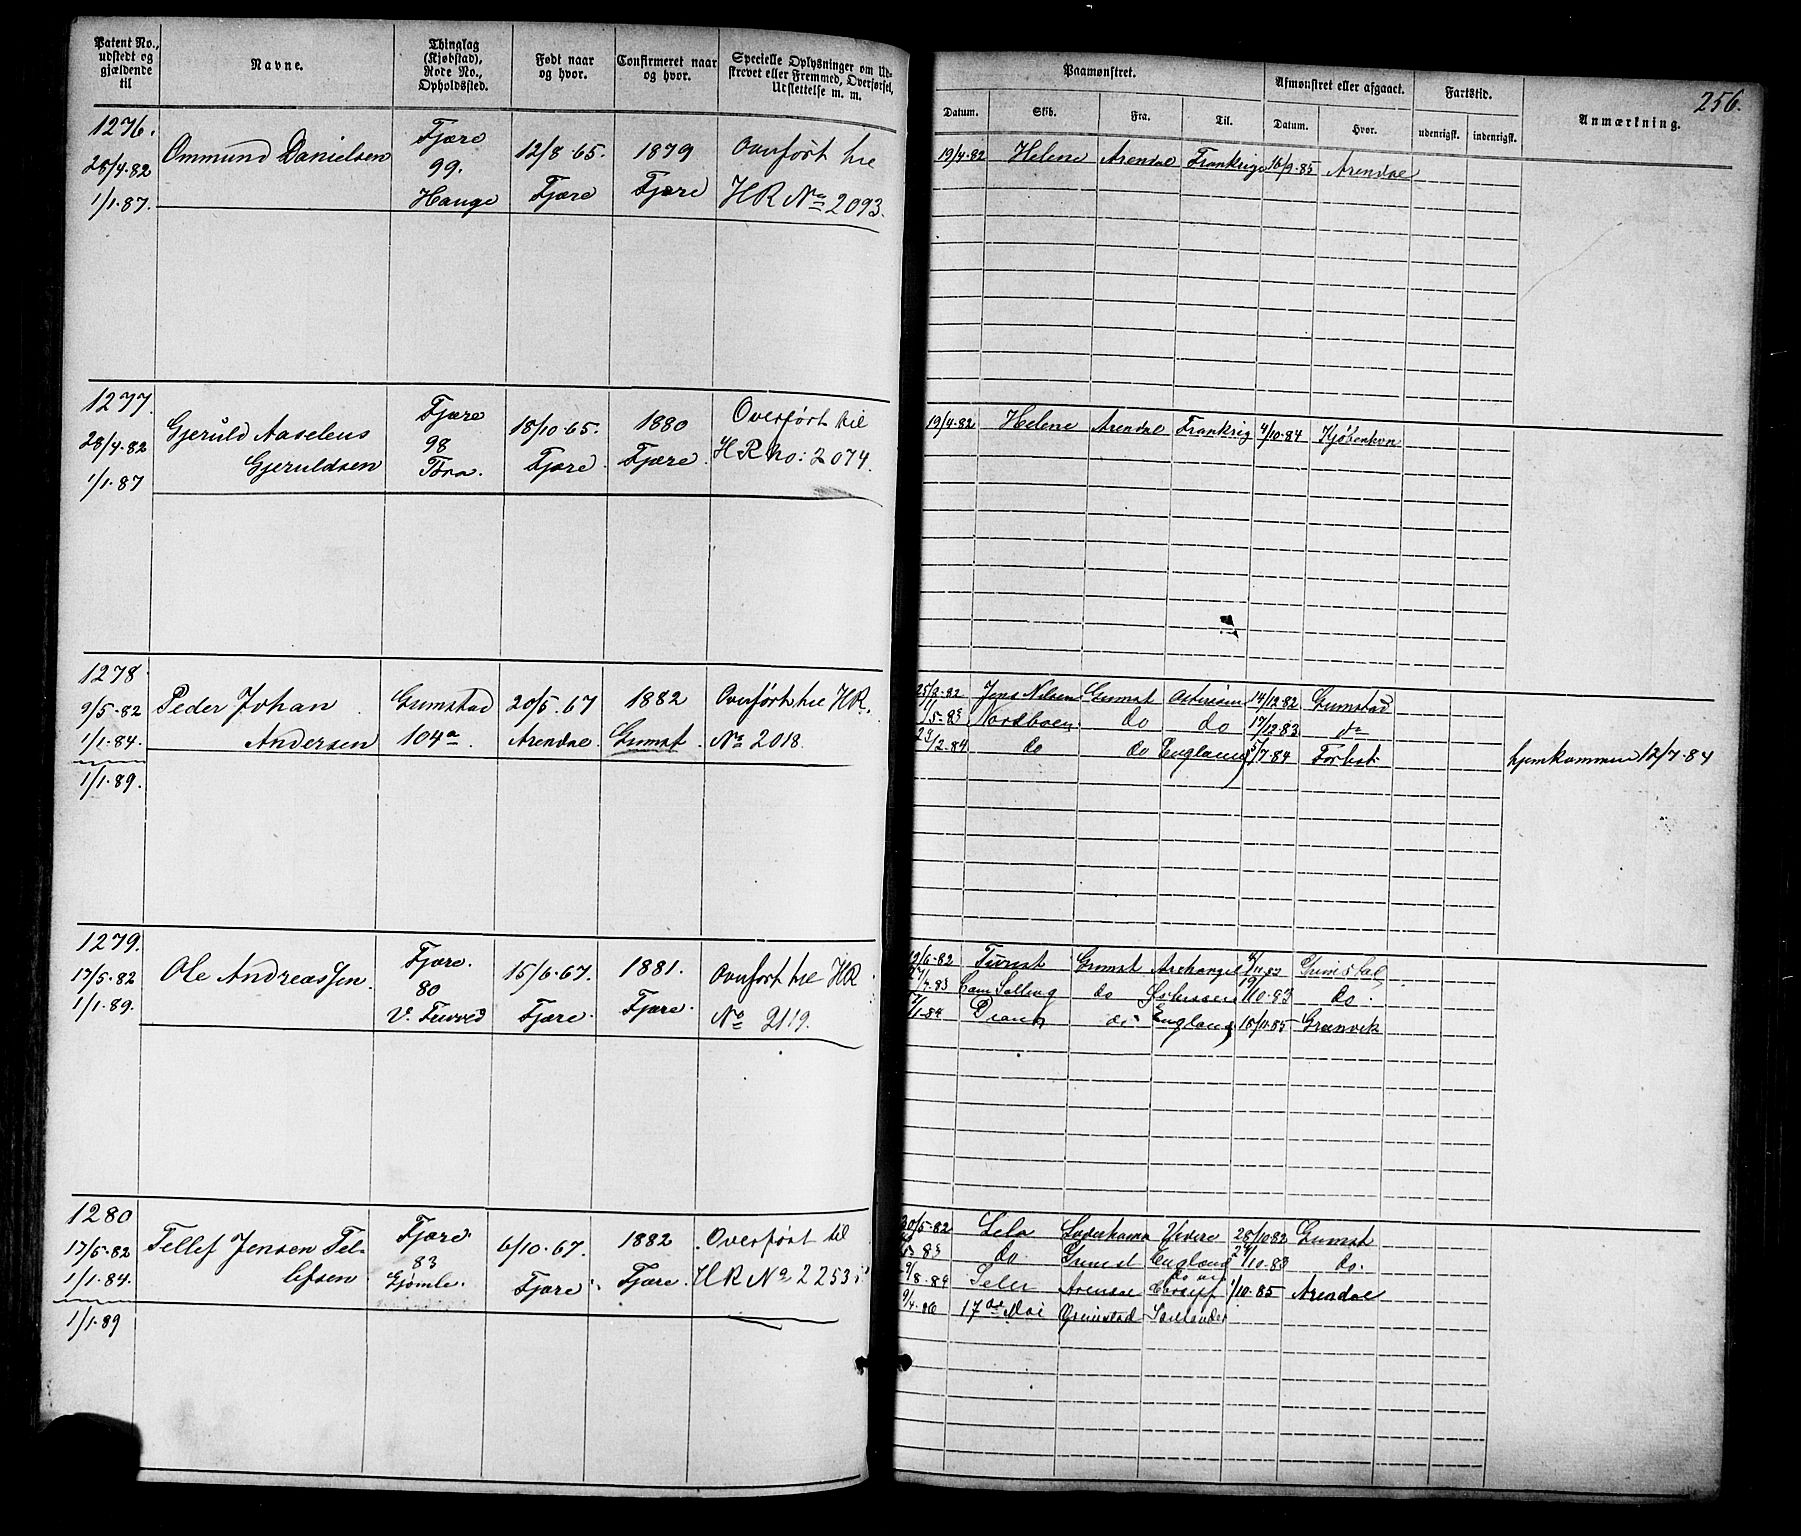 Patent No., udstedt og gjældende til
Navne.
Thinglag (Kjøbstad), Rode No., Opholdssted.
Født naar og hvor.
Confirmeret naar og hvor.
Specielle Oplysninger om Udskrevet eller Fremmed, Overførsel, Udslettelse m. m.
Paamønstret.
Afmønstret eller afgaaet.
Fartstid.
Anmærkning.
256.
Datum.
Skib.
Fra.
Til.
Datum.
Hvor.
udenrigsk.
indenrigsk.
1276.
28/4.82
1/1.87.
Ommund Danielsen
Fjære
99.
Hauge
12/8.65.
Fjære
1879
Fjære
Overført til
HR No 2093.
19/4.82 Helene Arendal Frankrige 16/9.85 Arendal
1277.
28/4.82
1/1.87
Gjeruld Aaselius
Gjeruldsen
Fjære
98
Bra.
18/10.65.
Fjære.
1880
Fjære.
Overført til
HR no: 2074.
19/4.82 Helene Arendal Frankrig 4/10.84 Kjøbenhvn
1278.
9/5.82
1/1.84.
1/1.89.
Peder Johan
Andersen
Grimstad
104a
20/5.67
Arendal.
1882
Grimst.
Overført til HR.
No 2018.
25/3.82 Jens Nilsen Grimst 14/12.82 Grimstad
Nordboen do do 17/12.83 do
23/2.84 do do England 5/7.84 Forlist.
hjemkommen 12/7.84
1279.
17/5.82
1/1.89.
Ole Andreassen
Fjære.
80
15/6.67.
Fjære.
1881.
Fjære.
Overført til HR
No 2119.
19/6.82 Grimst Archangel Grimstad
do 10.83 do.
1.84 England 18/11.85
1280
17/5.82
1/1.84.
1/1.89
Tellef Jensen Tel-
lefsen
Fjære.
83
Gjømle.
6/10.67.
Fjære.
1882
Fjære.
Overført til
HR No 2253
30/5.82 28/10.82 Grimst
83 do. Grimst England 10.83 do.
Arendal 10.85 Arendal
9/4.86 17de Mai Grimstad